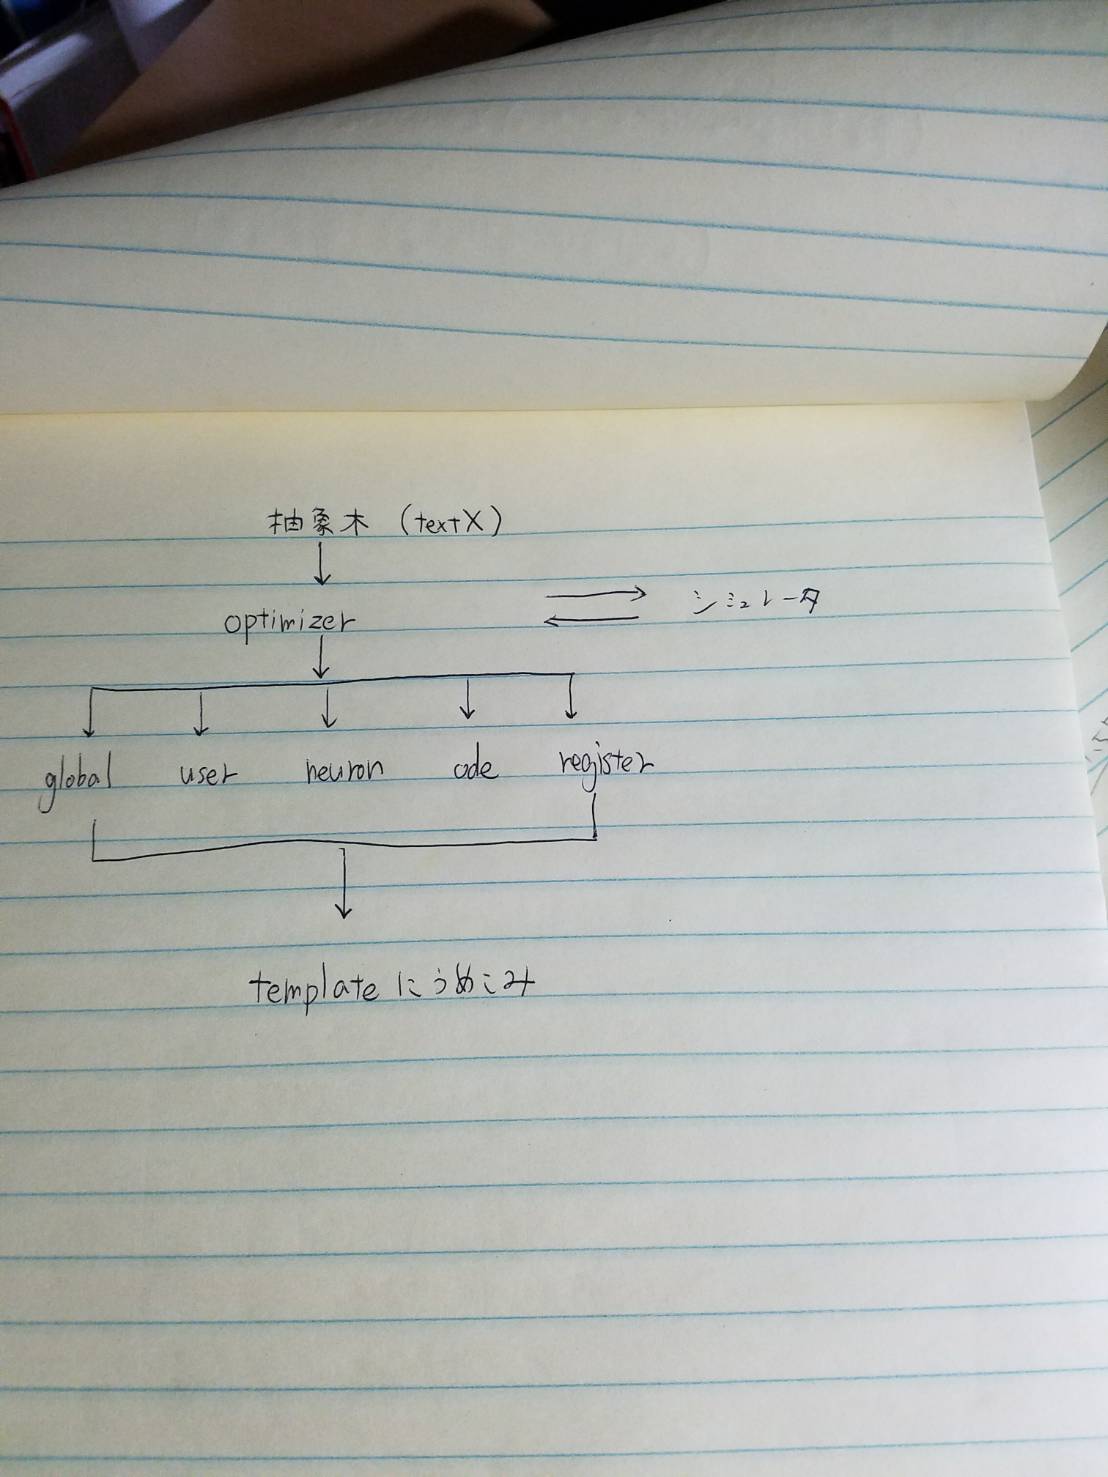 抽象木 (textX)
optimizer
シミュレータ
global user neuron code register
templateにうめこみ